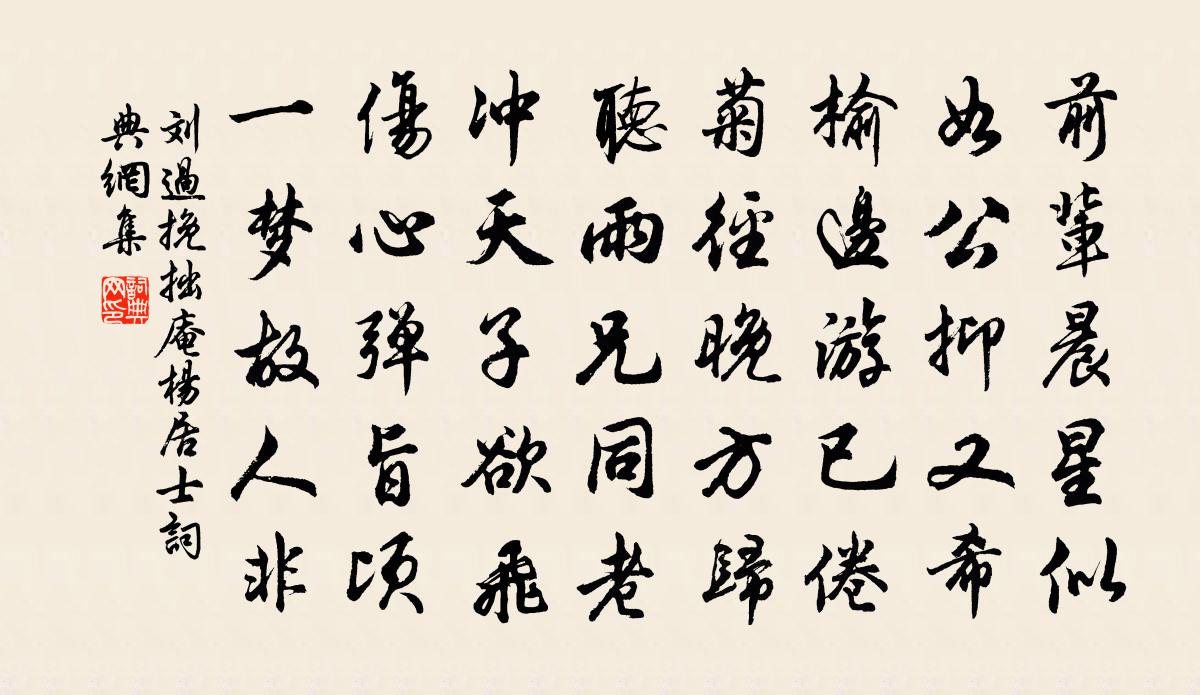 前輩晨星似
如公抑又希
榆邊游已倦
菊徑晚方歸
聽雨兄同老
冲天子欲飛
傷心弹旨頃
一梦故人非
刘過挽拙庵楊居士詞
典網集
詞典网印